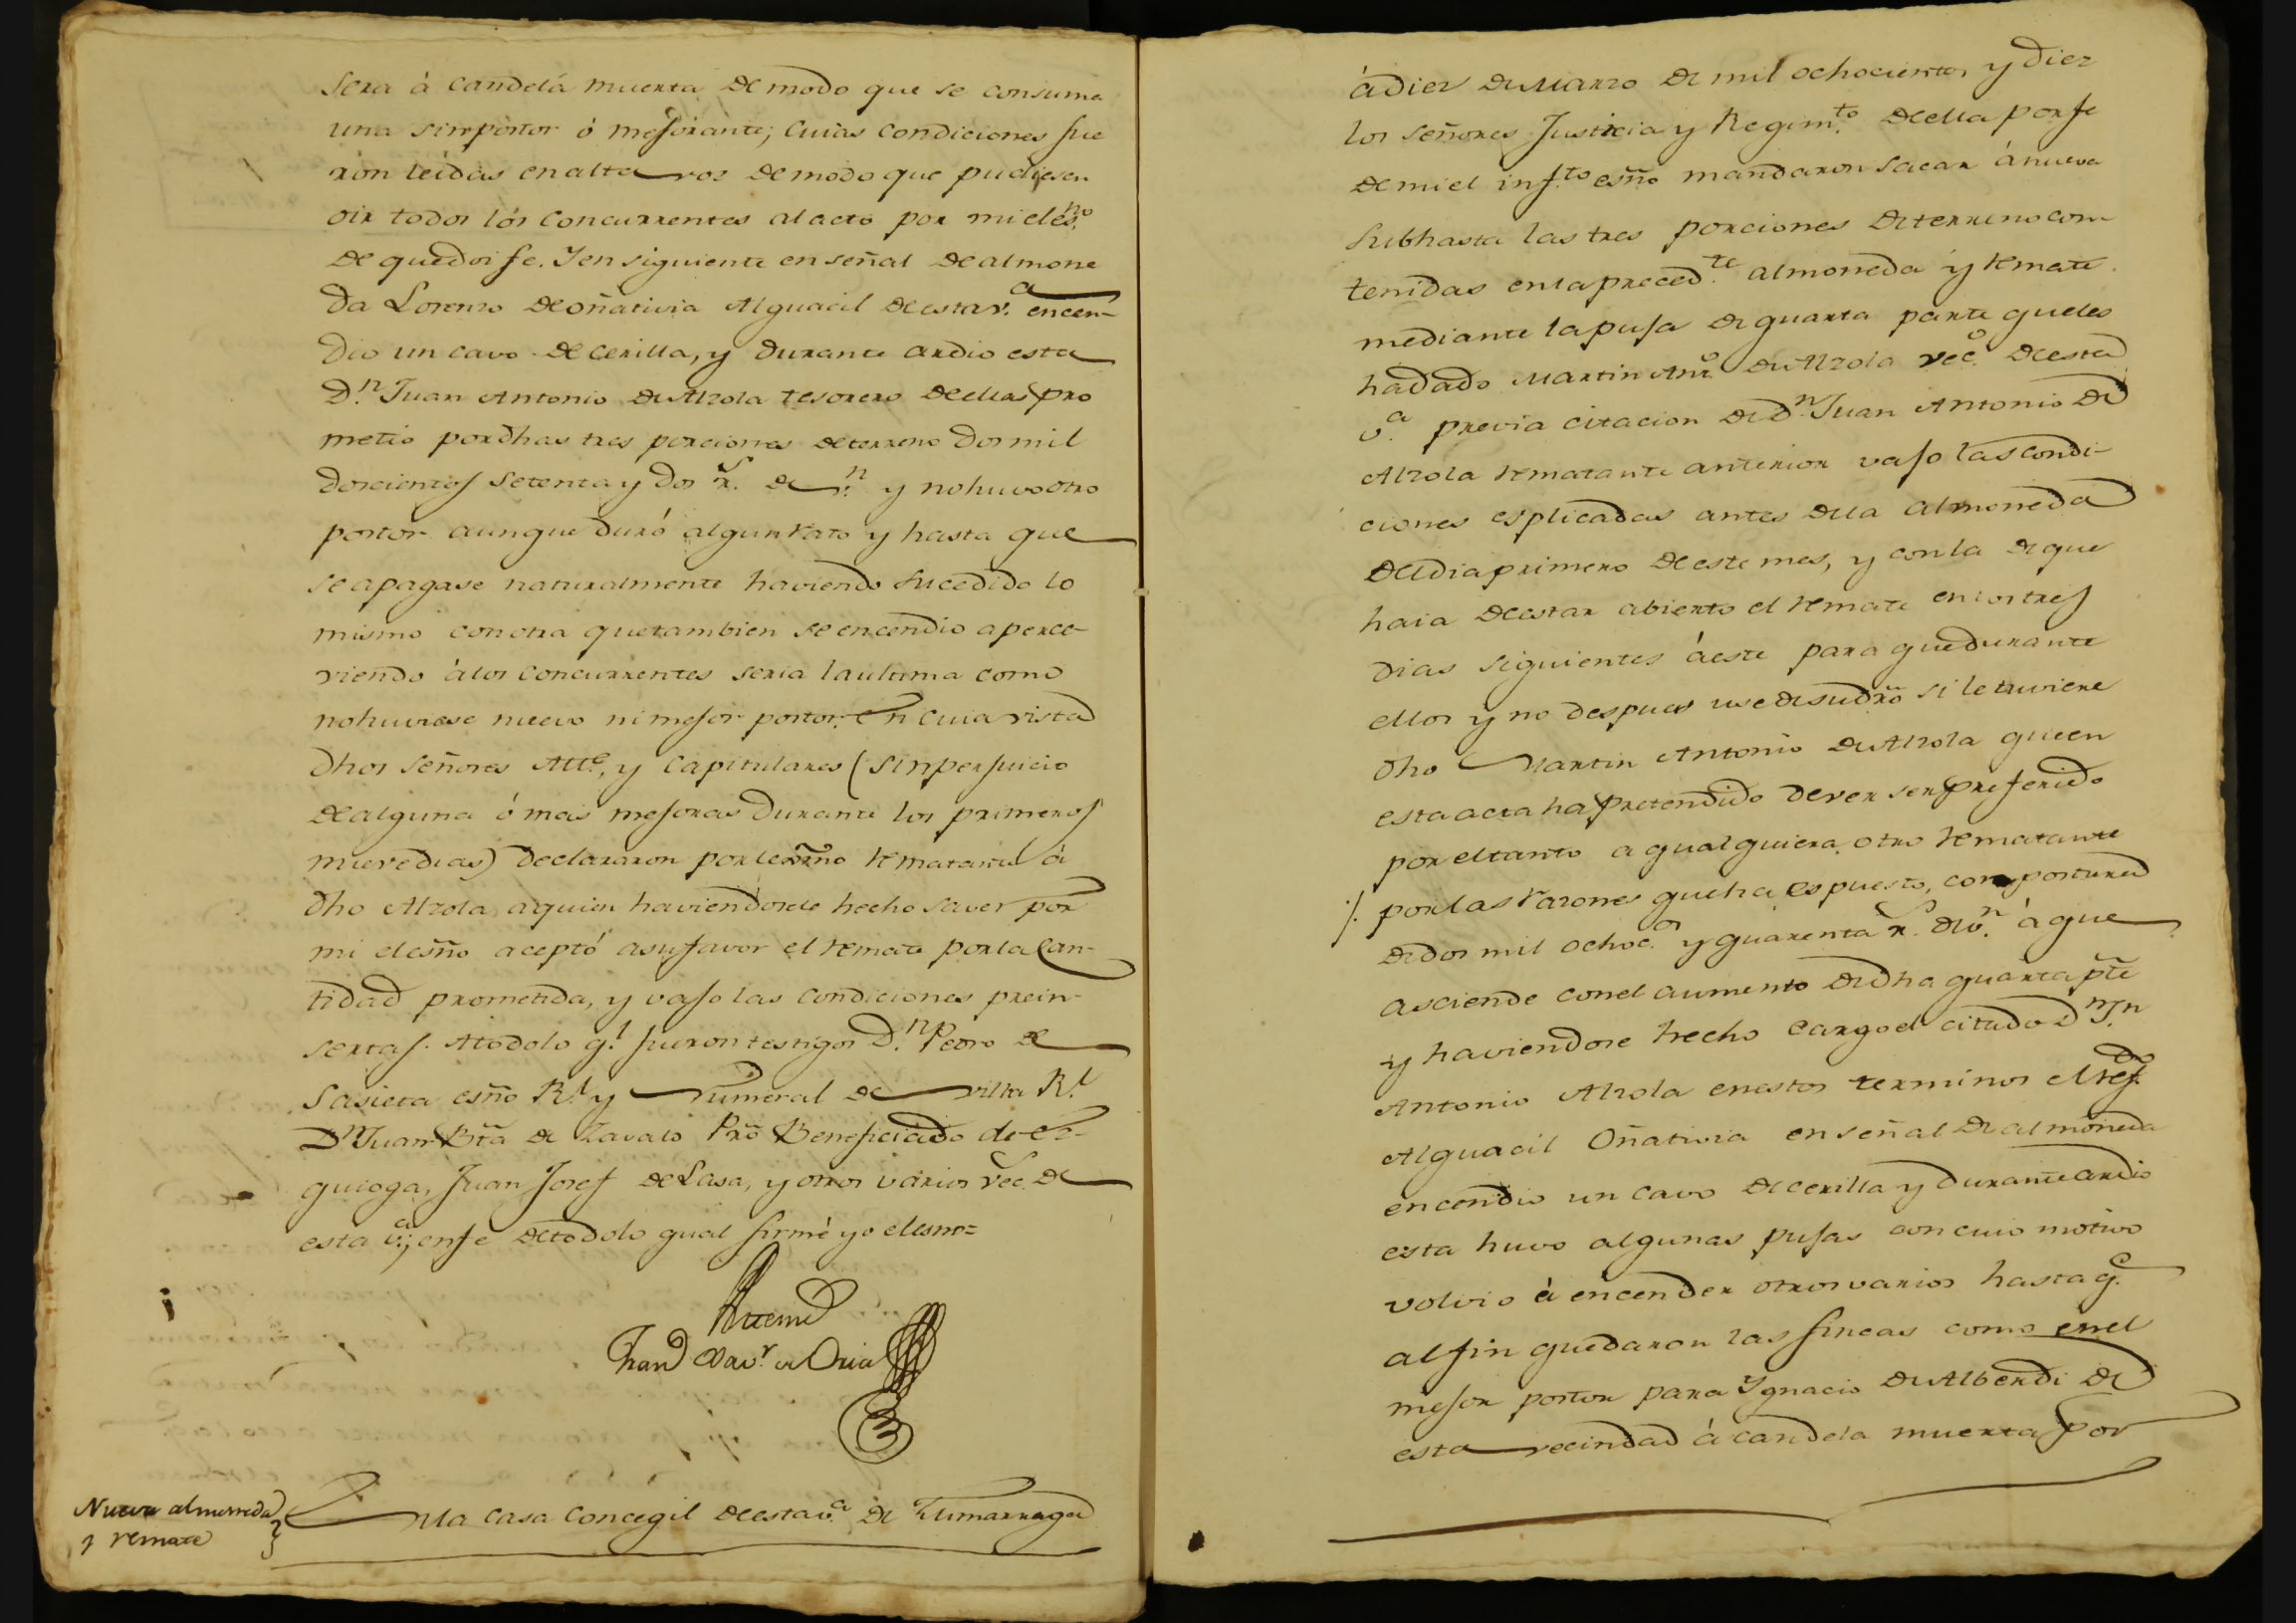 sera à candela muerta de modo que se consuma
una sin postor ó mejorante; cuias condiciones fue
ron leidas en alta voz de modo que pudiesen
oir todos los concurrentes al acto por mi el es.no
de que doi fe. Y en siguiente en señal de almone
da Lorenzo de Oñativia Alguacil de esta v.a encen-
dio un cavo de cerilla, y durante ardio esta
D.n Juan Antonio de Alzola tesorero de ella pro
metio por dhas tres porciones de terreno dos mil
doscientos setenta y dos r.s de v.n y no huvo otro
postor aunque duró algun rato y hasta que
se apagase naturalmente haviendo sucedido lo
mismo con otra que tambien se encendio aperce-
viendo á los concurrentes seria la ultima como
no huviese nuevo ni mejor postor. En cuia vista
dhos señores Alc.e, y Capitulares (sin perjuicio
de alguna ó mas mejoras durante los primeros
nueve dias) declararon por lexmo rematante à
dho Alzola, a quien haviendosele hecho saver por
mi el esño aceptó a su favor el remate por la can-
tidad prometida, y vajo las condiciones prein-
sertas. A todo lo q.l fueron testigos D.n Pedro de
Sasieta esño R.l y numeral de villa R.l
D.n Juan Bta de Zavalo Pro Beneficiado de Ez-
quioga, Juan Josef de Lasa, y otros varios vec.s de
esta v.a; en fe de todo lo qual firmé yo el esno=
Antemi
Fran.co Xav.r de Oria
Nueva almoneda
y remate
En la casa concegil de esta v.a de Zumarraga
à diez de Marzo de mil ochocientos y diez
los señores Justicia y Regim.to de ella por fe
de mi el inf.to esño mandaron sacar á nueva
subhasta las tres porciones de terreno con-
tenidas en la preced.te almoneda y remate
mediante la puja de quarta parte que les
ha dado Martin Ant.o de Alzola vec.o de esta
v.a previa citacion de D.n Juan Antonio de
Alzola rematante anterior vajo las condi-
ciones esplicadas antes de la almoneda
del dia primero de este mes, y con la de que
haia de estar abierto el remate en los tres
dias siguientes á este para que durante
ellos y no despues use de su dro si le tuviere
dho Martin Antonio de Alzola que en
esta acta ha pretendido dever ser preferido
por el tanto a qualquiera otro rematante
por las razones que ha espuesto, con postura
de dos mil ochoc.os y quarenta r.s de v.n à que
asciende con el aumento de dha quarta pte
y haviendose hecho cargo el citado D.n J.n
Antonio Alzola en estos terminos el ref.do
Alguacil Oñativia en señal de almoneda
encendio un cavo de cerilla y durante ardio
esta huvo algunas pujas con cuio motivo
volvio à encender otros varios hasta q.e
al fin quedaron las fincas como en el
mejor postor para Ygnacio de Alberdi de
esta vecindad á candela muerta por